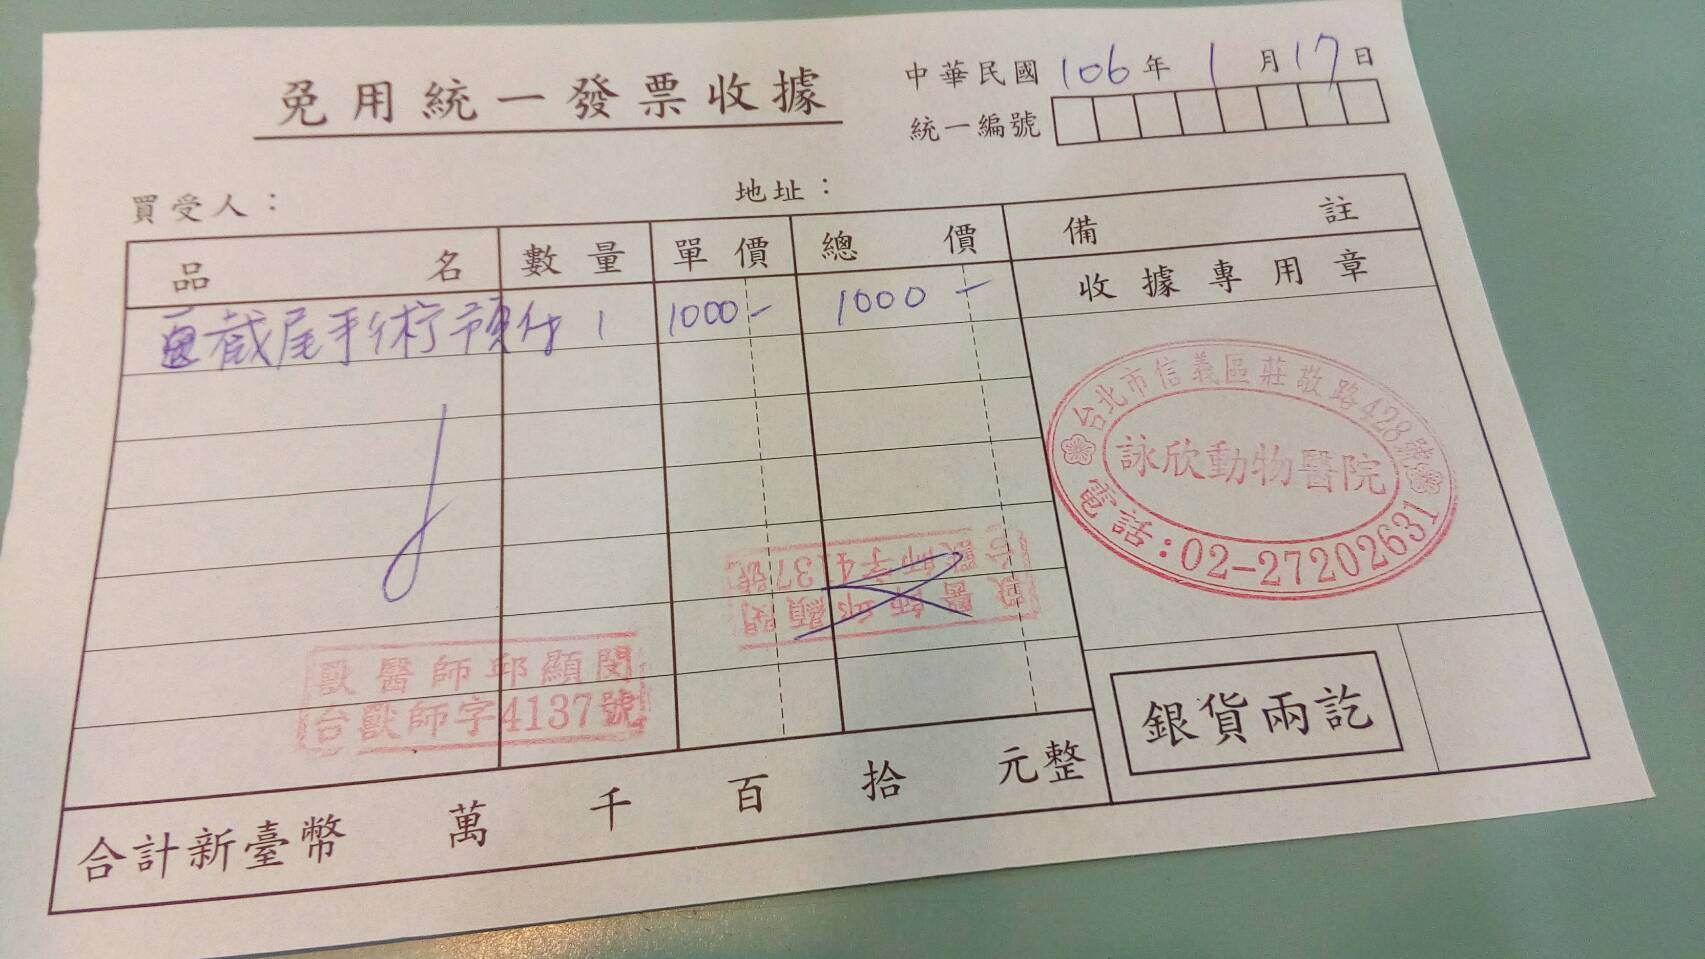 免用統一發票收據
中華民國 106 年 1 月 17 日
統一編號
買受人： 地址：
品名 數量 單價 總價 備註
收據專用章
截尾手術預付 1 1000- 1000-
台北市信義區莊敬路428號
詠欣動物醫院
電話:02-27202631
台獸師字4137號
獸醫師邱顯閔
獸醫師邱顯閔
台獸師字4137號
銀貨兩訖
合計新臺幣 萬 千 百 拾 元整